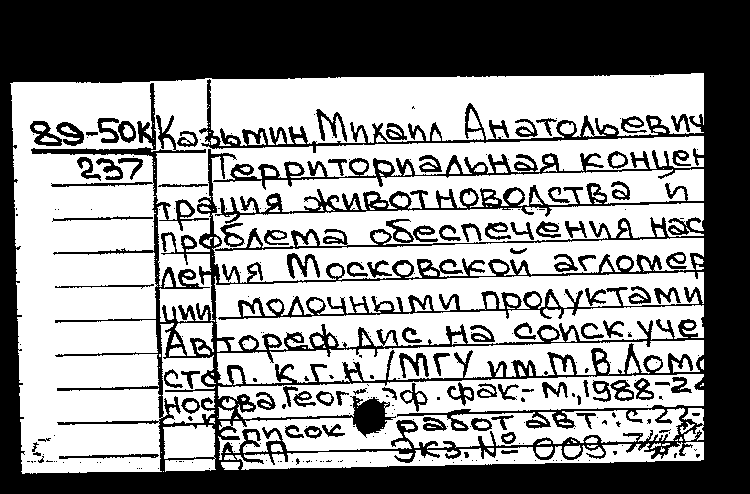 89-50к Казьмин, Михаил Анатольевич
237 Территориальная концен
трация животноводства и
проблема обеспечения насе
ления Московской агломер
ции молочными продуктами
Автореф. дис. на соиск. уче
степ. к.г.н. /МГУ им. М.В. Ломо
носова. Геогр. фак.- М., 1988.-24
с.: ил
Список работ авт.: с. 22-
ДСП. Экз. № 009.